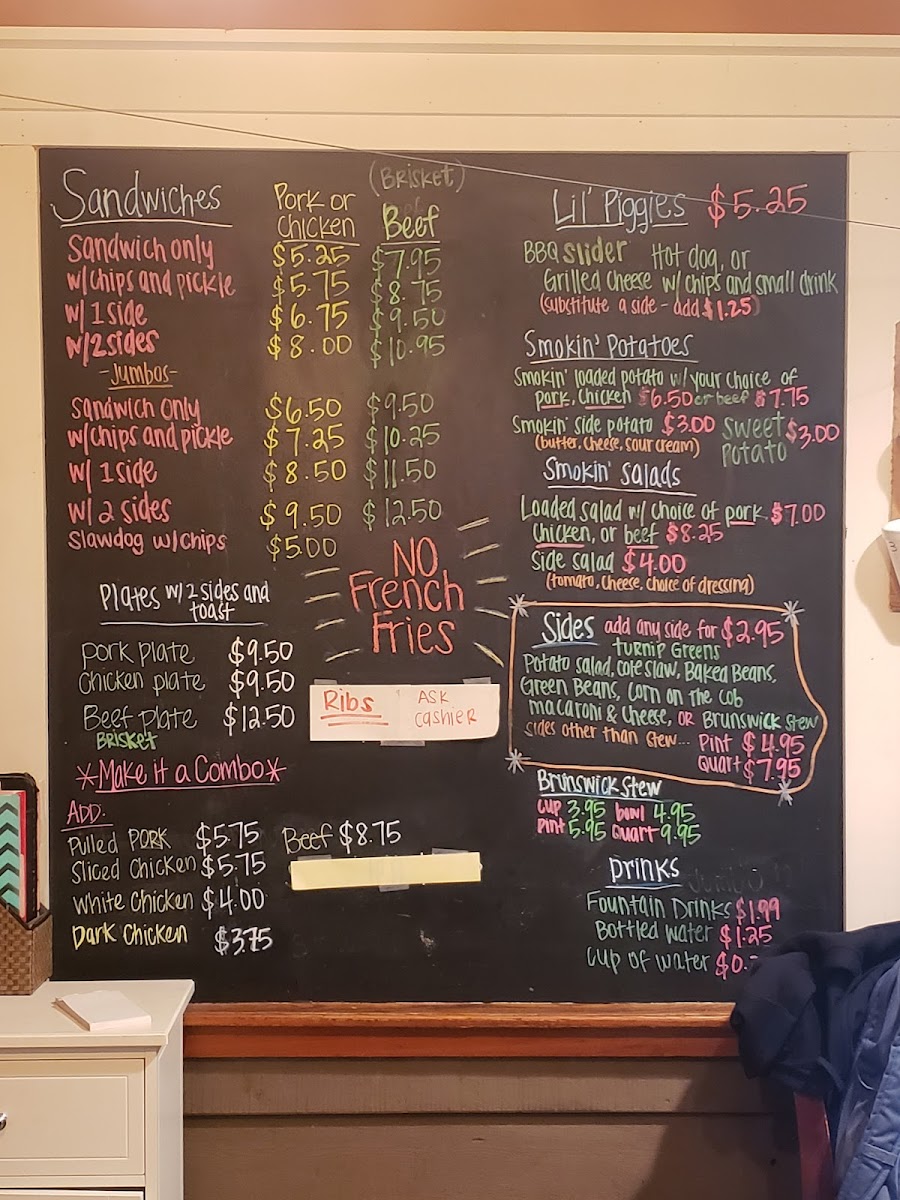 Sandwiches
Pork or Chicken
(Brisket)
Beef
Sandwich only $5.25 $7.95
w/chips and pickle $5.75 $8.75
w/ 1 side $6.75 $9.50
w/2 sides $8.00 $10.95
-Jumbos-
Sandwich only $6.50 $9.50
w/chips and pickle $7.25 $10.25
w/ 1 side $8.50 $11.50
w/ 2 sides $9.50 $12.50
Slawdog w/chips $5.00
NO
French
Fries
Plates w/2 sides and
toast
Pork plate $9.50
Chicken plate $9.50
Beef plate $12.50
Brisket
Ribs ASK
cashier
*Make it a Combo*
ADD:
Pulled Pork $5.75 Beef $8.75
Sliced Chicken $5.75
White Chicken $4.00
Dark Chicken $3.75
Lil' Piggies $5.25
BBQ slider Hot dog, or
Grilled cheese w/chips and small drink
(substitute a side - add $1.25)
Smokin' Potatoes
Smokin' loaded potato w/your choice of
pork, chicken $6.50 or beef $7.75
Smokin' side potato $3.00
(butter, cheese, sour cream)
Sweet Potato $3.00
Smokin' Salads
Loaded salad w/ choice of pork $7.00
chicken, or beef $8.25
Side salad $4.00
(tomato, cheese, choice of dressing)
Sides add any side for $2.95
Turnip Greens
Potato salad, cole slaw, Baked Beans,
Green Beans, Corn on the Cob
macaroni & cheese, or Brunswick Stew
sides other than stew... Pint $4.95
Quart $7.95
Brunswick Stew
cup 3.95 bowl 4.95
Pint 5.95 Quart 9.95
Drinks
Fountain Drinks $1.99
Bottled water $1.25
Cup of water $0.